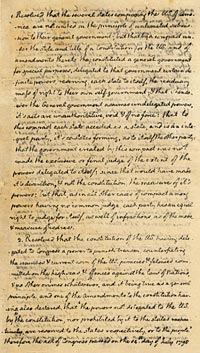 1. Resolved that the several states composing the US. of Ame-
rica are not united on the principle of unlimited submis-
sion to their general government; but that by a compact un-
der the style and title of a Constitution for the US. and of
amendments thereto, they constituted a general government
for special purposes, delegated to that government certain de-
finite powers, reserving each state to itself, the residuary
mass of right to their own self-government; & that whenso-
ever the General government assumes undelegated powers,
it's acts are unauthoritative, void, & of no force: that to
this compact each state acceded as a state, and is an inte-
gral party, it's co-states forming, as to itself, the other party:
that the government created by this compact was not
made the exclusive or final judge of the extent of the
powers delegated to itself; since that would have made
it's discretion, & not the constitution, the measure of it's
powers; but that, as in all other cases of compact among
powers having no common judge, each party has an equal
right to judge for itself, as well of infractions as of the mode
& measure of redress.
2. Resolved that the constitution of the US. having dele-
gated to Congress a power to punish treason, counterfeiting
the securities & current coin of the US. piracies & felonies com-
mitted on the high seas & offences against the law of nations,
& no other crimes whatsoever, and it being true as a general
principle, and one of the amendments to the constitution having
also declared that "the powers not delegated to the US. by
the constitution, nor prohibited by it to the states
are reserved to the states respectively, or to the people"
therefore the act of Congress passed on the 14. day of July 1798